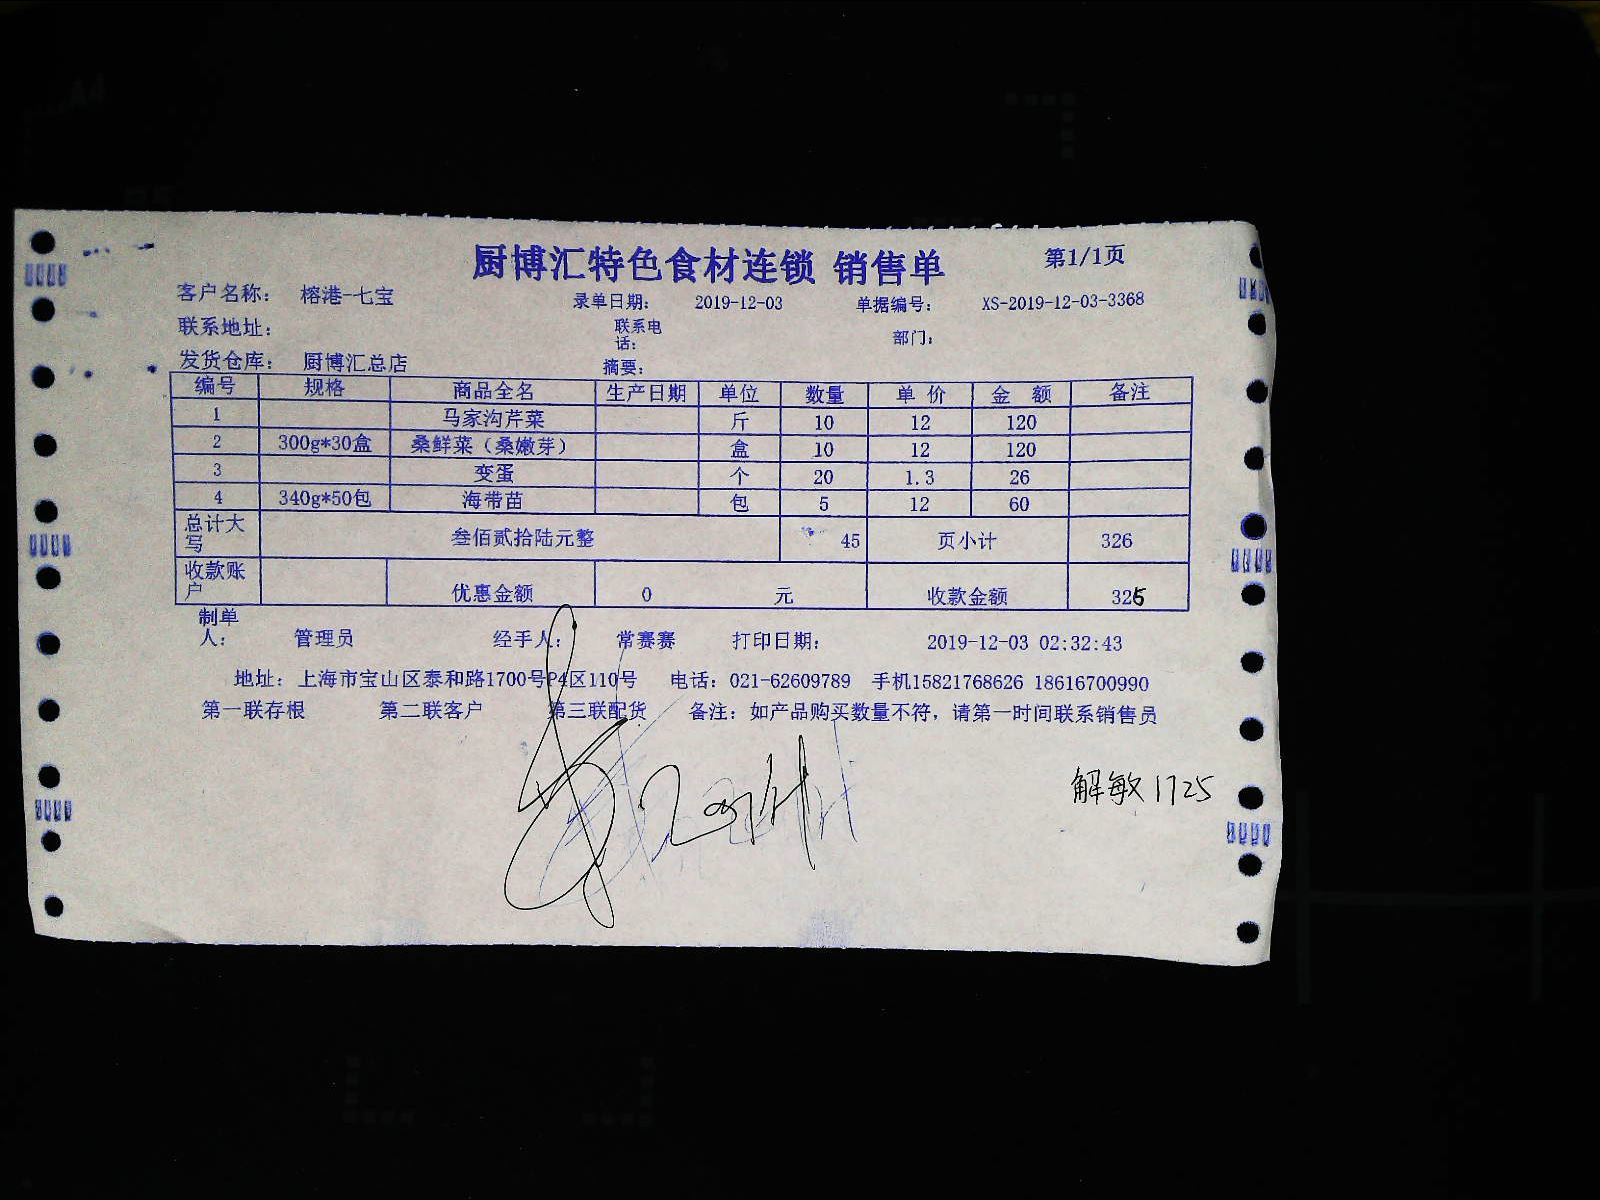 厨博汇特色食材连锁 销售单 第1/1页
客户名称： 榕港-七宝 录单日期： 2019-12-03 单据编号： XS-2019-12-03-3368
联系地址： 联系电话： 部门：
发货仓库： 厨博汇总店 摘要：
编号 规格 商品全名 生产日期 单位 数量 单 价 金 额 备注
1 马家沟芹菜 斤 10 12 120
2 300g*30盒 桑鲜菜（桑嫩芽） 盒 10 12 120
3 变蛋 个 20 1.3 26
4 340g*50包 海带苗 包 5 12 60
总计大写 叁佰贰拾陆元整 45 页小计 326
收款账户 优惠金额 0 元 收款金额 325
制单人： 管理员 经手人： 常赛赛 打印日期： 2019-12-03 02:32:43
地址：上海市宝山区泰和路1700号P4区110号 电话：021-62609789 手机15821768626 18616700990
第一联存根 第二联客户 第三联配货 备注：如产品购买数量不符，请第一时间联系销售员
解敏1725